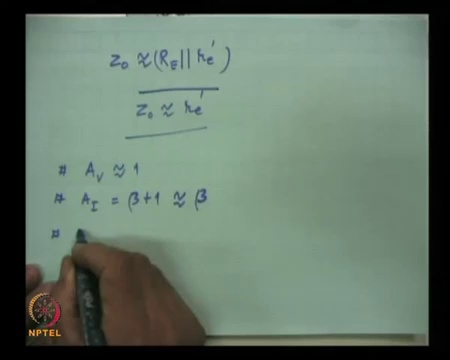 Z₀ ≈ (R_E || r_e')
Z₀ ≈ r_e'
# A_v ≈ 1
# A_I = β+1 ≈ β
#
NPTEL